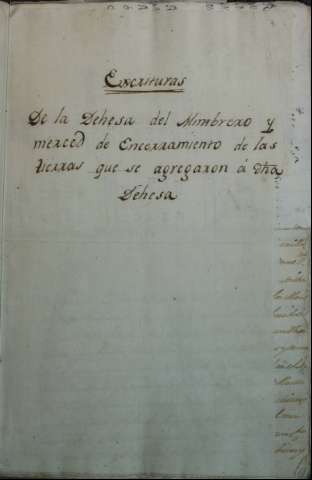 Escrituras
De la Dehesa del Mimbrero y
merced de Encerramiento de las
tierras que se agregaron á dha
Dehesa